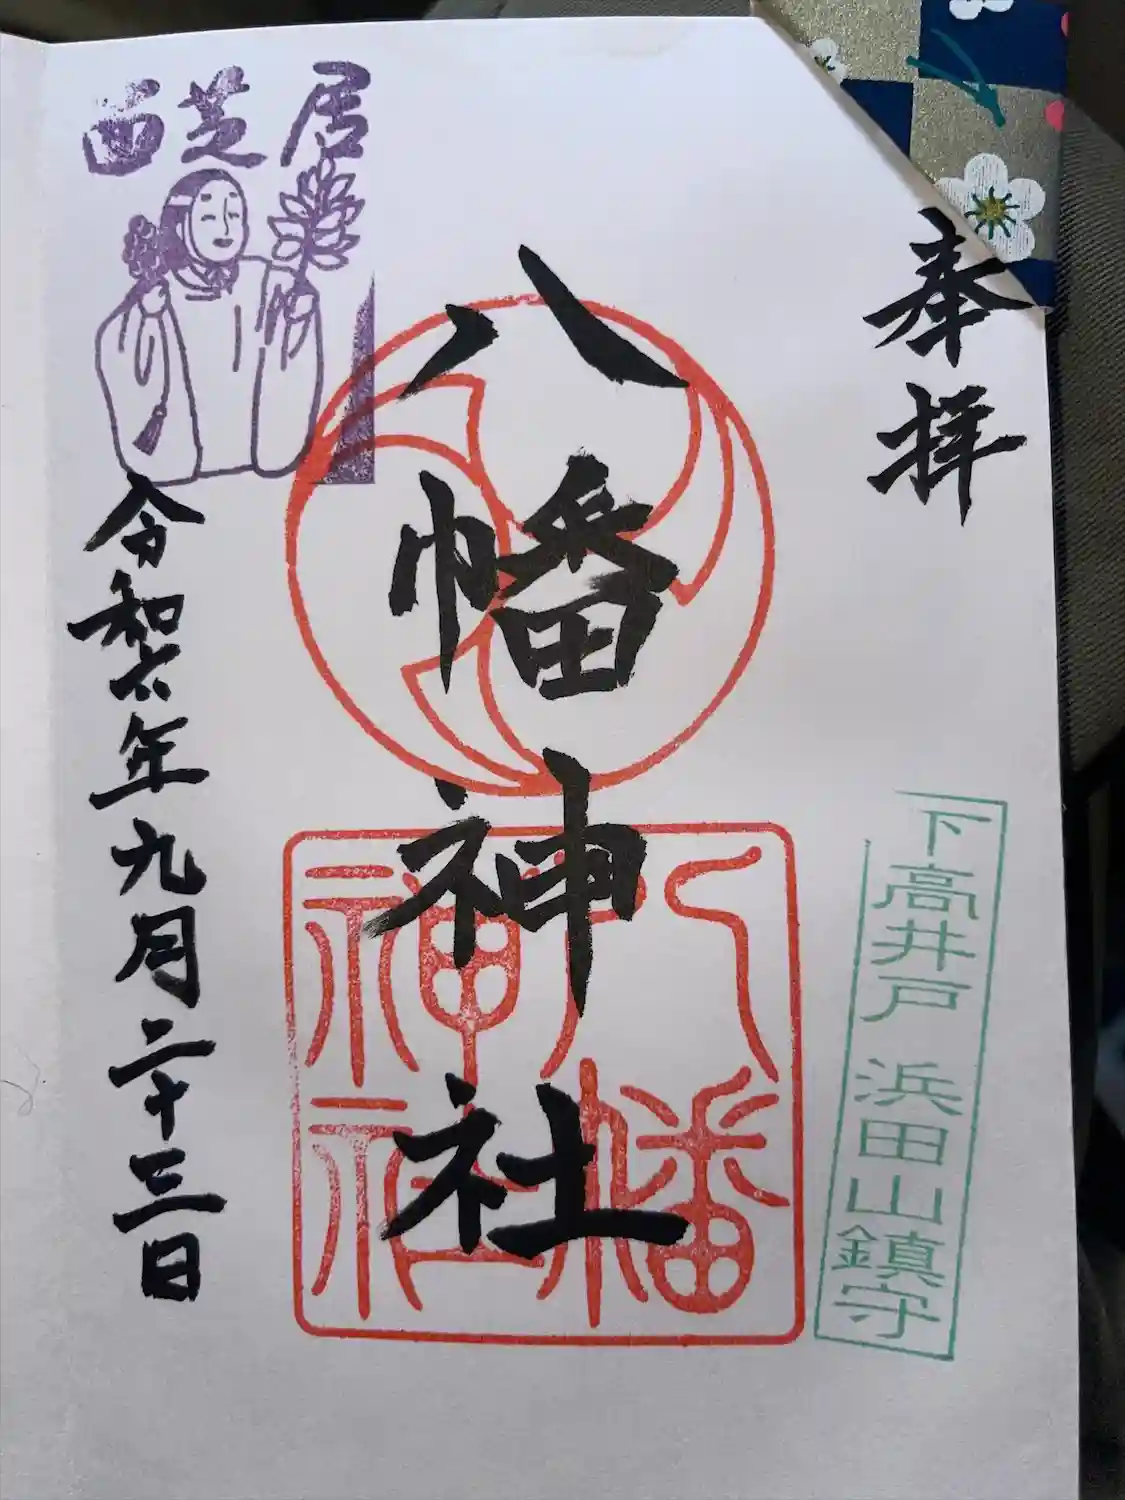 奉拝
下高井戸 浜田山鎮守
八幡神社
八幡神社
面芝居
令和六年九月二十三日